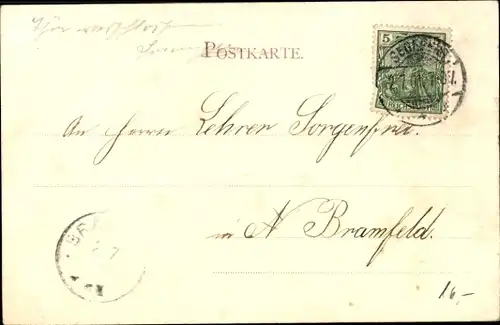 POSTKARTE.
5
SEGEBERG
An Herrn Lehrer Sorgenfrei
in N Bramfeld.
BRA
7
16,-